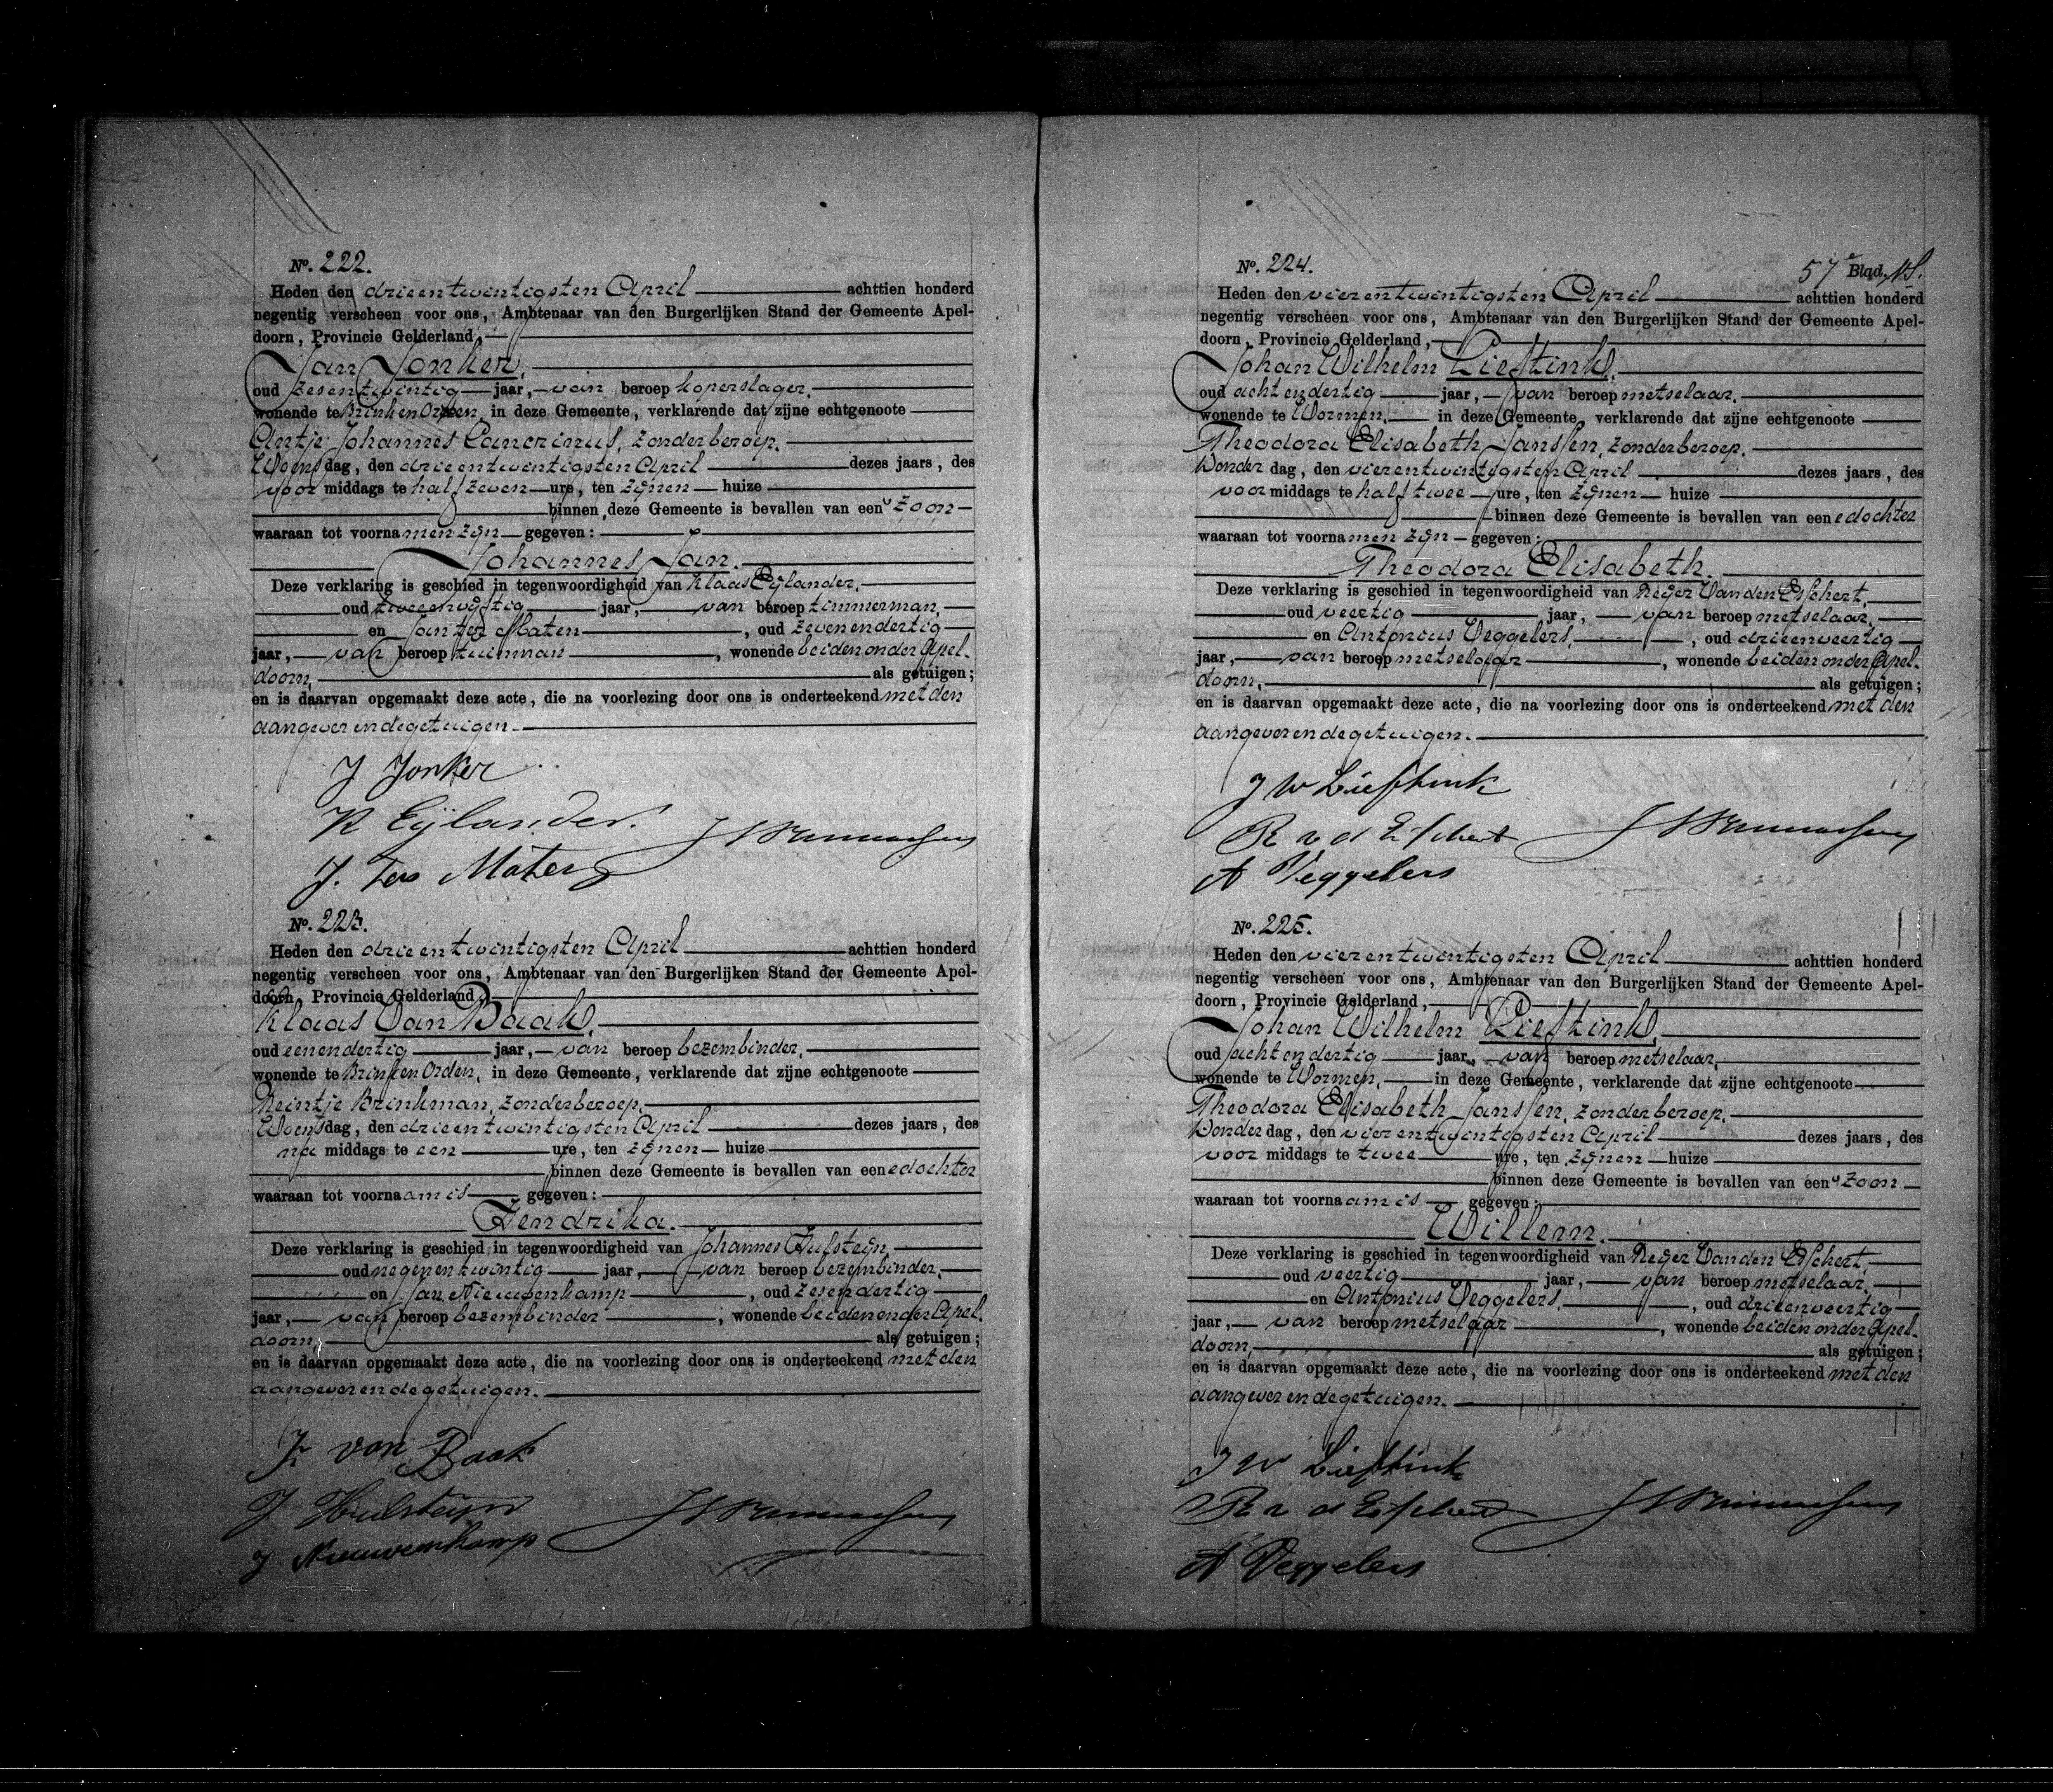 No. 222.
Heden den drieentwintigsten April achttien honderd
negentig verscheen voor ons, Ambtenaar van den Burgerlijken Stand der Gemeente Apel-
doorn, Provincie Gelderland,
Jan Jonker,
oud zesentwintig jaar, van beroep koperslager,
wonende te Brink en Orden, in deze Gemeente, verklarende dat zijne echtgenoote
Antje Johannes Cancrinus, zonder beroep,
Woensdag, den drieentwintigsten April dezes jaars, des
voor middags te half zeven ure, ten zijnen huize
binnen deze Gemeente is bevallen van een zoon
waaraan tot voornamen zijn gegeven:
Johannes Jan.
Deze verklaring is geschied in tegenwoordigheid van Klaas Eijlander,
oud tweeenvijftig jaar, van beroep timmerman,
en Jan ter Maten, oud zevenendertig
jaar, van beroep tuinman, wonende beiden onder Apel-
doorn, als getuigen;
en is daarvan opgemaakt deze acte, die na voorlezing door ons is onderteekend met den
aangever en de getuigen.
J Jonker
K Eijlander.
J. Ter Maten
No. 223.
Heden den drieentwintigsten April achttien honderd
negentig verscheen voor ons, Ambtenaar van den Burgerlijken Stand der Gemeente Apel-
doorn, Provincie Gelderland,
Klaas Van Baak,
oud eenendertig jaar, van beroep bezembinder,
wonende te Brink en Orden, in deze Gemeente, verklarende dat zijne echtgenoote
Reintje Brinkman, zonder beroep,
Woensdag, den drieentwintigsten April dezes jaars, des
na middags te een ure, ten zijnen huize
binnen deze Gemeente is bevallen van eene dochter
waaraan tot voornaam is gegeven:
Hendrika.
Deze verklaring is geschied in tegenwoordigheid van Johannes Hulsteijn,
oud negenentwintig jaar, van beroep bezembinder,
en Jan Nieuwenkamp, oud zesendertig
jaar, van beroep bezembinder, wonende beiden onder Apel-
doorn, als getuigen;
en is daarvan opgemaakt deze acte, die na voorlezing door ons is onderteekend met den
aangever en de getuigen.
K van Baak
J Hulsteijn
J Nieuwenkamp
57e Blad.
No. 224.
Heden den vierentwintigsten April achttien honderd
negentig verscheen voor ons, Ambtenaar van den Burgerlijken Stand der Gemeente Apel-
doorn, Provincie Gelderland,
Johan Wilhelm Lieftink,
oud achtendertig jaar, van beroep metselaar,
wonende te Wormen, in deze Gemeente, verklarende dat zijne echtgenoote
Theodora Elisabeth Janssen, zonder beroep,
Donderdag, den vierentwintigsten April dezes jaars, des
voor middags te half twee ure, ten zijnen huize
binnen deze Gemeente is bevallen van eene dochter
waaraan tot voornamen zijn gegeven:
Theodora Elisabeth.
Deze verklaring is geschied in tegenwoordigheid van Reijer Van den Esschert,
oud veertig jaar, van beroep metselaar,
en Antonius Veggelers, oud drieenveertig
jaar, van beroep metselaar, wonende beiden onder Apel-
doorn, als getuigen;
en is daarvan opgemaakt deze acte, die na voorlezing door ons is onderteekend met den
aangever en de getuigen.
J W Lieftink
R v d Esschert
A Veggelers
No. 225.
Heden den vierentwintigsten April achttien honderd
negentig verscheen voor ons, Ambtenaar van den Burgerlijken Stand der Gemeente Apel-
doorn, Provincie Gelderland,
Johan Wilhelm Lieftink,
oud achtendertig jaar, van beroep metselaar,
wonende te Wormen, in deze Gemeente, verklarende dat zijne echtgenoote
Theodora Elisabeth Janssen, zonder beroep,
Donderdag, den vierentwintigsten April dezes jaars, des
voor middags te twee ure, ten zijnen huize
binnen deze Gemeente is bevallen van een zoon
waaraan tot voornaam is gegeven:
Willem.
Deze verklaring is geschied in tegenwoordigheid van Reijer Van den Esschert,
oud veertig jaar, van beroep metselaar,
en Antonius Veggelers, oud drieenveertig
jaar, van beroep metselaar, wonende beiden onder Apel-
doorn, als getuigen;
en is daarvan opgemaakt deze acte, die na voorlezing door ons is onderteekend met den
aangever en de getuigen.
J W Lieftink
R v d Esschert
A Veggelers